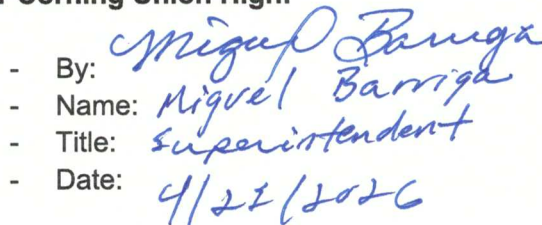 Corning Union High
- By: Miguel Barriga
- Name: Miguel Barriga
- Title: Superintendent
- Date: 4/21/2026